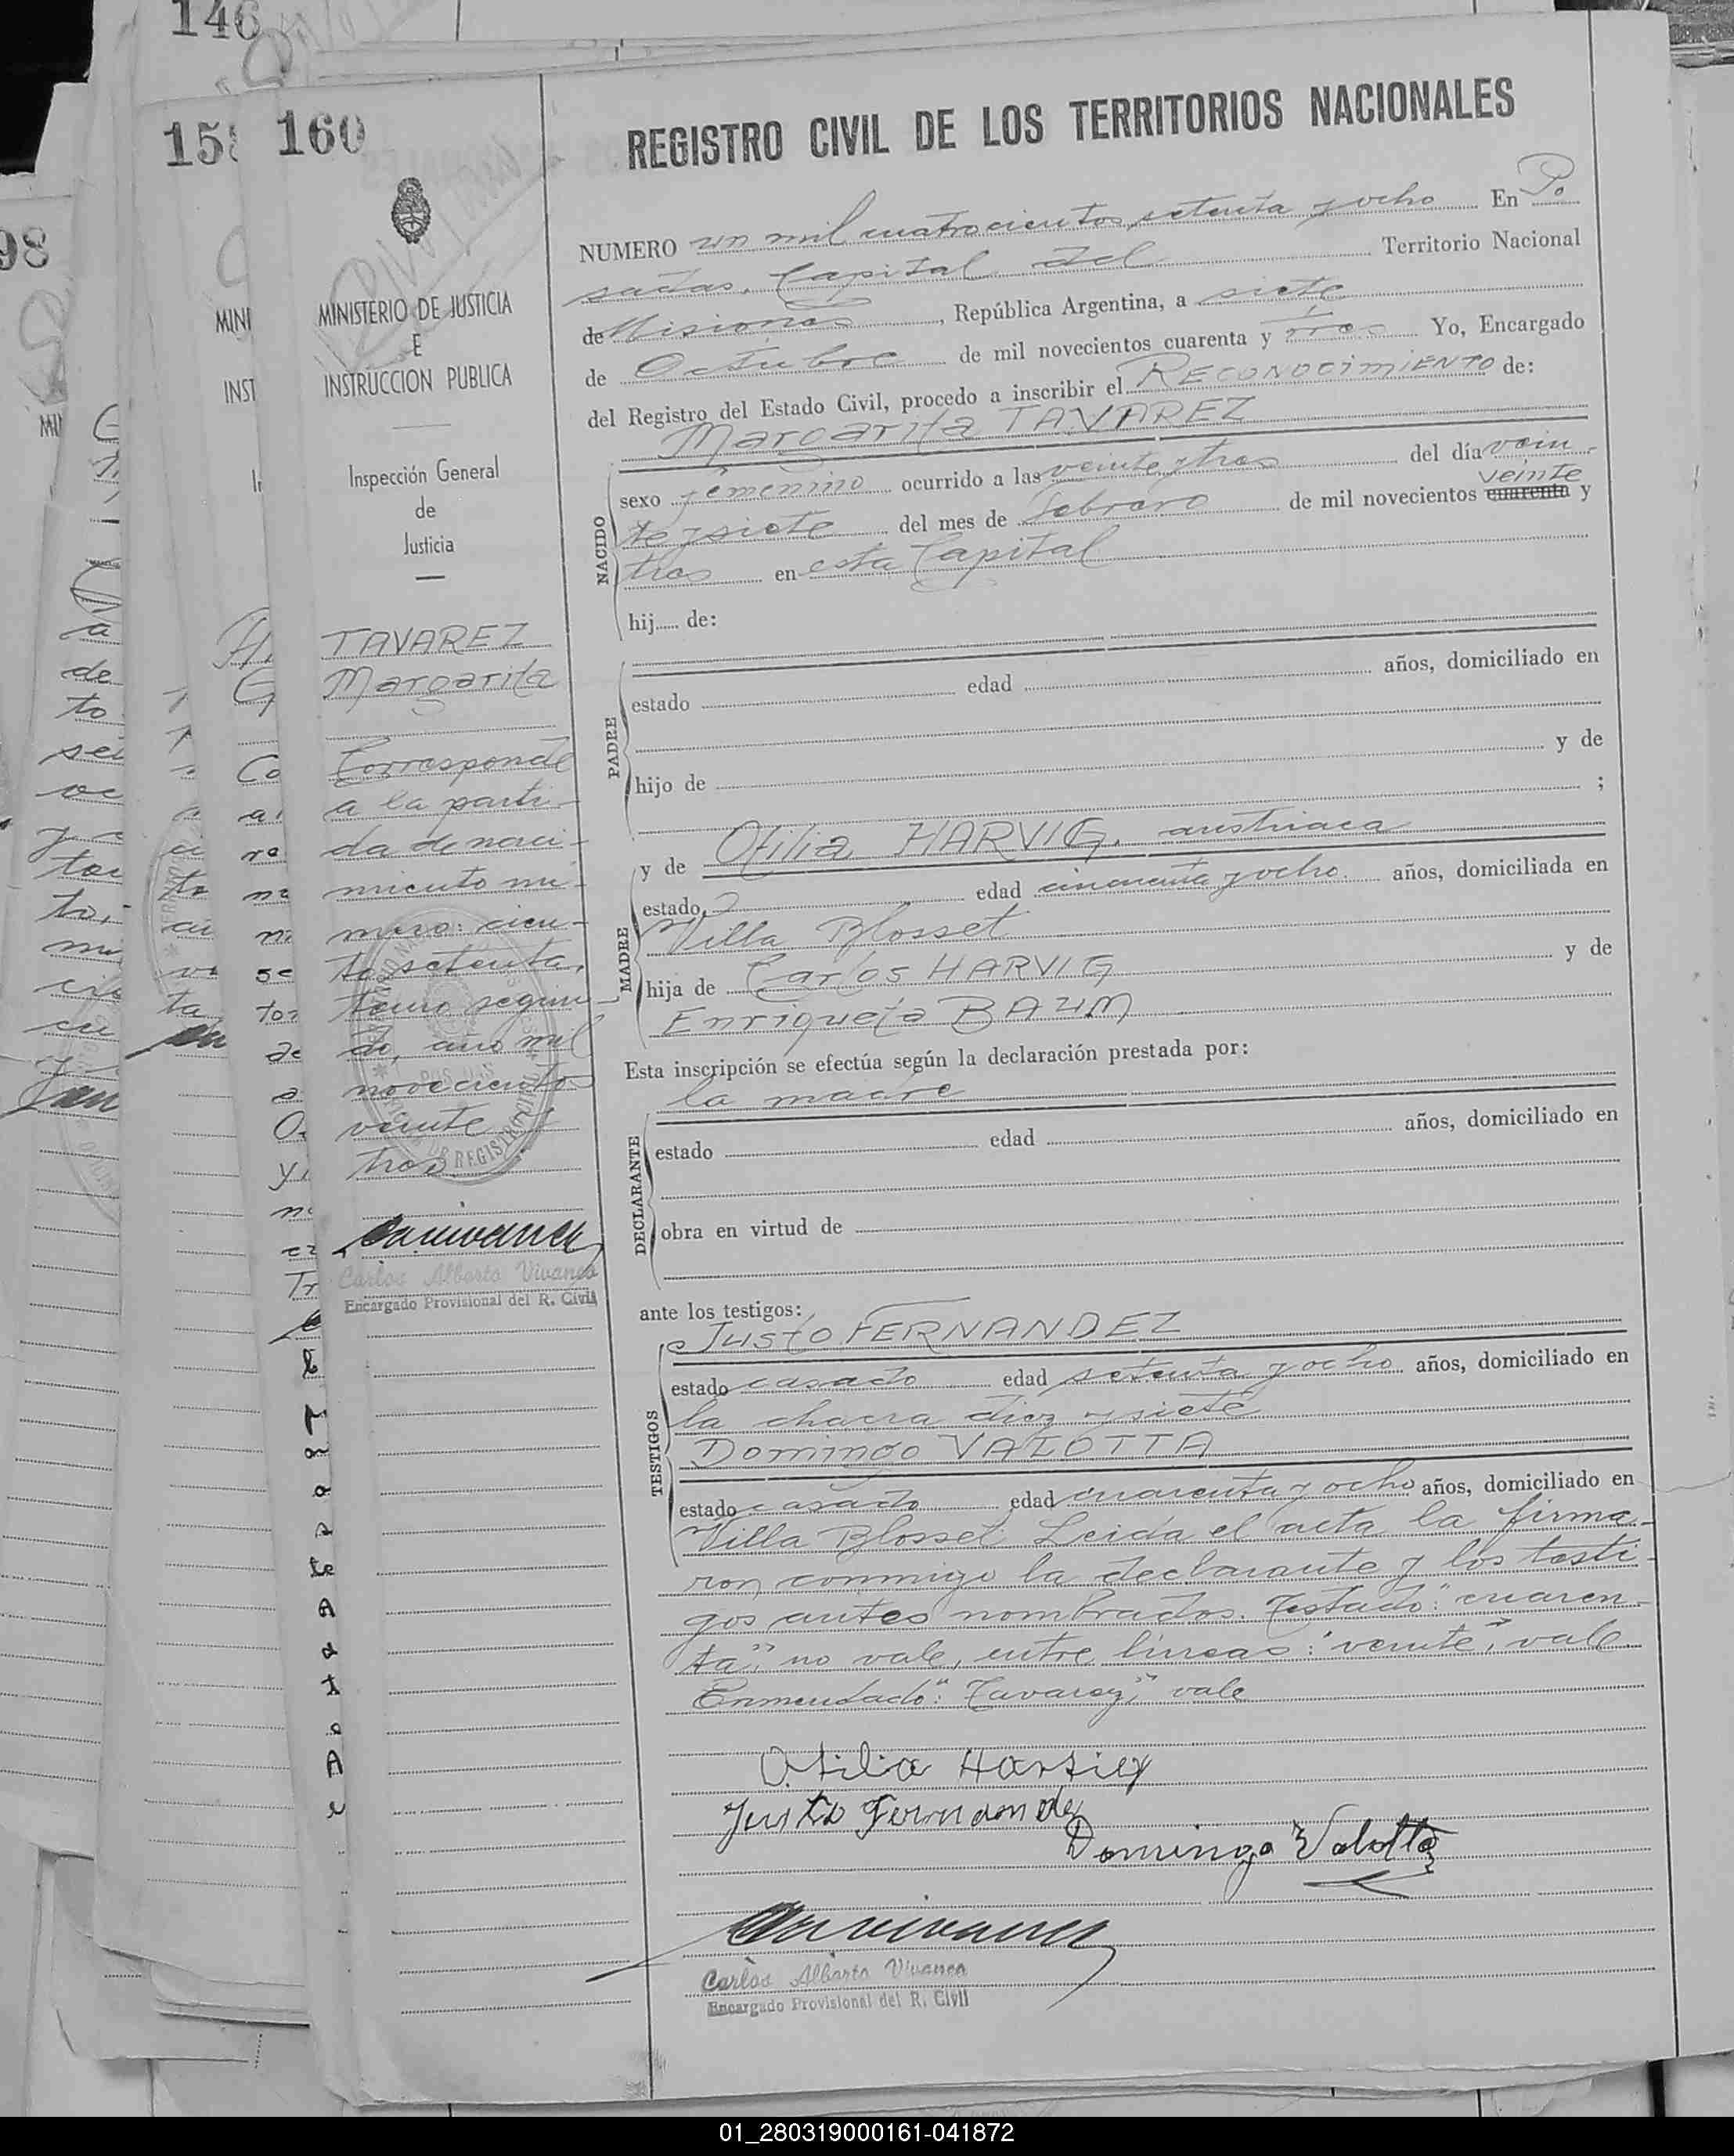 146
158
160
98
REGISTRO CIVIL DE LOS TERRITORIOS NACIONALES
NUMERO un mil cuatrocientos setenta y ocho En Po
sadas, Capital del Territorio Nacional
de Misiones, República Argentina, a siete
de Octubre de mil novecientos cuarenta y tres Yo, Encargado
del Registro del Estado Civil, procedo a inscribir el RECONOCIMIENTO de:
Margarita TAVAREZ
NACIDO
sexo femenino ocurrido a las veinte y tres del día vein
veinte
te y siete del mes de febrero de mil novecientos cuarenta y
tres en esta Capital
hij de:
PADRE
estado edad años, domiciliado en
hijo de y de
;
y de Otilia HARVIG, austriaca
MADRE
estado edad cincuenta y ocho años, domiciliada en
Villa Blosset
hija de Carlos HARVIG y de
Enriqueta BAUM
Esta inscripción se efectúa según la declaración prestada por:
la madre
DECLARANTE
estado edad años, domiciliado en
obra en virtud de
ante los testigos:
Justo FERNANDEZ
TESTIGOS
estado casado edad setenta y ocho años, domiciliado en
la chacra diez y siete
Domingo VALOTTA
estado casado edad cuarenta y ocho años, domiciliado en
Villa Blosset Leida el acta la firma-
ron conmigo la declarante y los testi-
gos antes nombrados. Testado: "cuaren-
ta": no vale, entre líneas: "veinte", vale
Enmendado: "Tavarez" vale
Otilia Harvieg
Justo Fernandez
Domingo Valotta
Carlos Alberto Vivanco
Encargado Provisional del R. Civil
MINISTERIO DE JUSTICIA
E
INSTRUCCION PUBLICA
Inspección General
de
Justicia
TAVAREZ
Margarita
Corresponde
a la parti-
da de naci-
miento nú-
mero: cien-
to setenta,
tomo segun-
do, año mil
novecientos
veinte
tres
Carlos Alberto Vivanco
Encargado Provisional del R. Civil
01_280319000161-041872